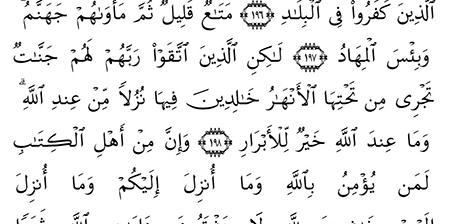 ٱلَّذِينَ كَفَرُوا۟ فِى ٱلْبِلَـٰدِ ١٩٦ مَتَـٰعٌ قَلِيلٌ ثُمَّ مَأْوَىٰهُمْ جَهَنَّمُ
وَبِئْسَ ٱلْمِهَادُ ١٩٧ لَـٰكِنِ ٱلَّذِينَ ٱتَّقَوْا۟ رَبَّهُمْ لَهُمْ جَنَّـٰتٌ
تَجْرِى مِن تَحْتِهَا ٱلْأَنْهَـٰرُ خَـٰلِدِينَ فِيهَا نُزُلًا مِّنْ عِندِ ٱللَّهِ ۗ
وَمَا عِندَ ٱللَّهِ خَيْرٌ لِّلْأَبْرَارِ ١٩٨ وَإِنَّ مِنْ أَهْلِ ٱلْكِتَـٰبِ
لَمَن يُؤْمِنُ بِٱللَّهِ وَمَا أُنزِلَ إِلَيْكُمْ وَمَا أُنزِلَ